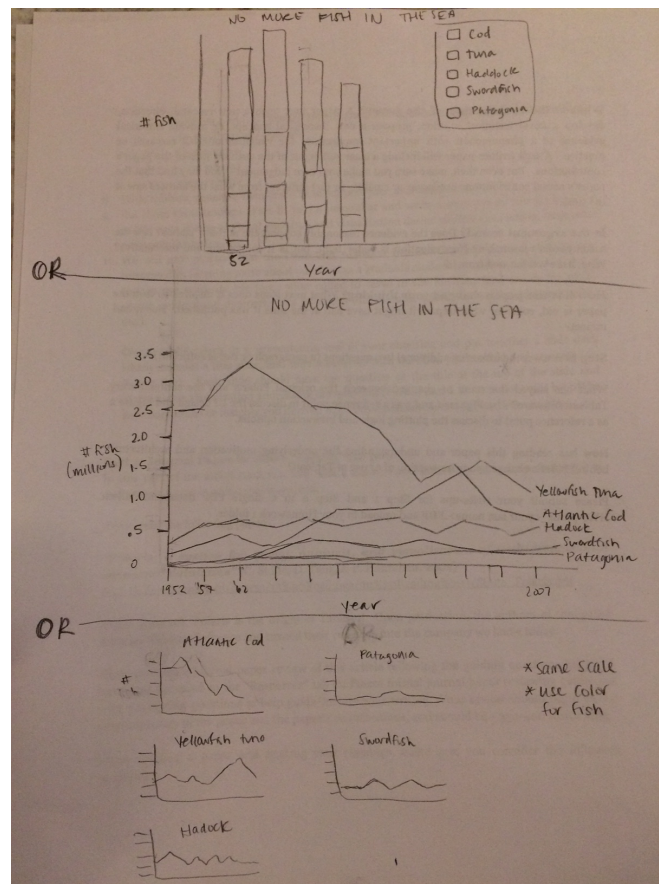 NO MORE FISH IN THE SEA
Cod
tuna
Haddock
Swordfish
Patagonia
# fish
52
Year
OR
NO MORE FISH IN THE SEA
3.5
3.0
2.5
2.0
# fish
(millions)
1.5
1.0
.5
0
Yellowfish Tuna
Atlantic Cod
Hadock
Swordfish
Patagonia
1952 '57 '62 2007
year
OR
OR
Atlantic Cod
#
Patagonia
* same scale
* use color
for fish
Yellowfish tuna
Swordfish
Hadock